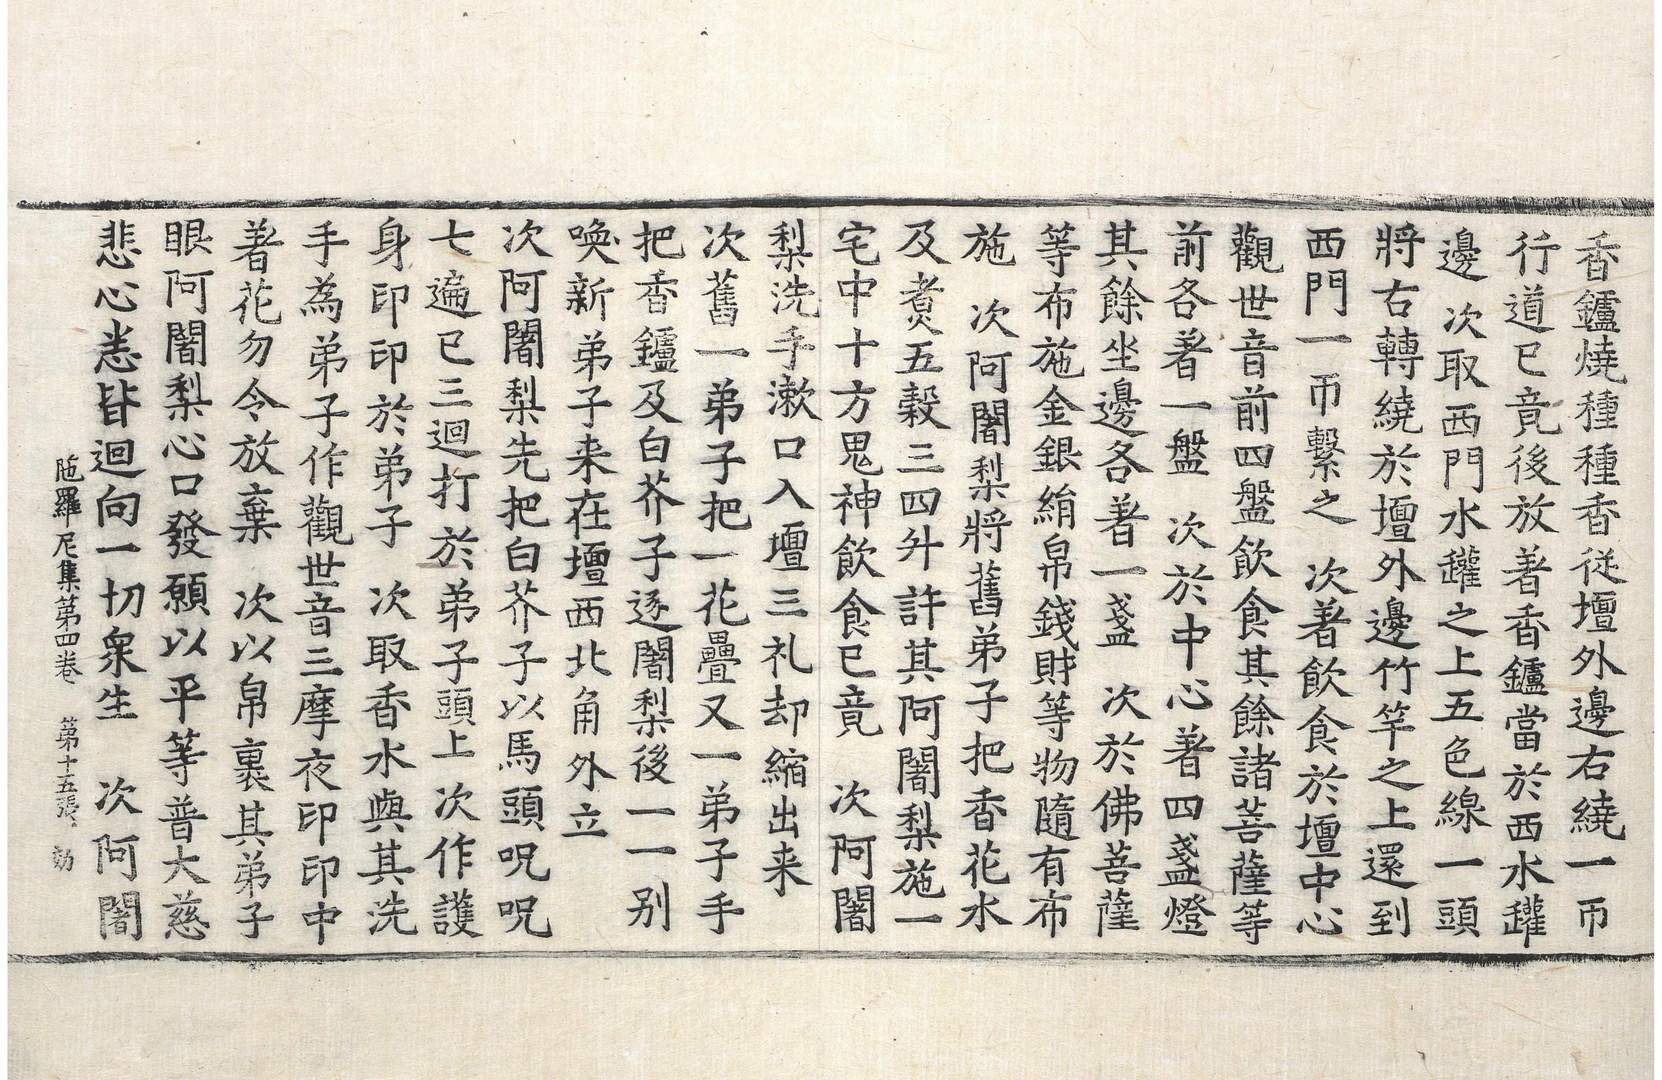 香鑪燒種種香從壇外邊右繞一帀
行道已竟後放著香鑪當於西水罐
邊　次取西門水罐之上五色線一頭
將右轉繞於壇外邊竹竿之上還到
西門一帀繫之　次著飲食於壇中心
觀世音前四盤飲食其餘諸菩薩等
前各著一盤　次於中心著四盞燈
其餘坐邊各著一盞　次於佛菩薩
等布施金銀絹帛錢財等物隨有布
施　次阿闍梨將舊弟子把香花水
及煑五穀三四升許其阿闍梨施一
宅中十方鬼神飲食已竟　次阿闍
梨洗手漱口入壇三礼却縮出来
次舊一弟子把一花疊又一弟子手
把香鑪及白芥子逐闍梨後一一别
喚新弟子来在壇西北角外立
次阿闍梨先把白芥子以馬頭呪呪
七遍已三迴打於弟子頭上次作護
身印印於弟子　次取香水與其洗
手為弟子作觀世音三摩夜印印中
著花勿令放棄　次以帛裹其弟子
眼阿闍梨心口發願以平等普大慈
悲心悉皆迴向一切衆生　次阿闍
陁羅尼集第四卷　第十五張　効